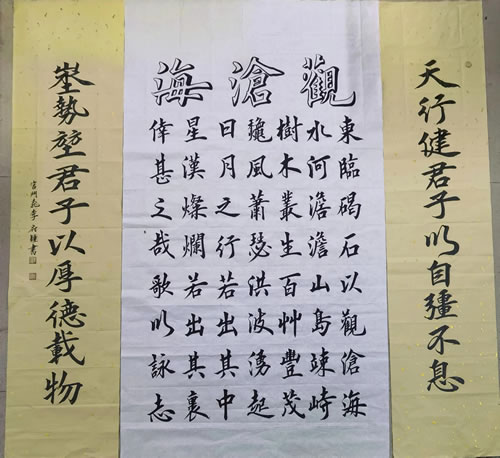 天行健君子以自彊不息
觀滄海
東臨碣石以觀滄海
水河澹澹山島竦崎
樹木叢生百艸豐茂
風蕭瑟洪波湧起
日月之行若出其中
星漢燦爛若出其裏
倖甚之哉歌以詠志
埊勢堃君子以厚德載物